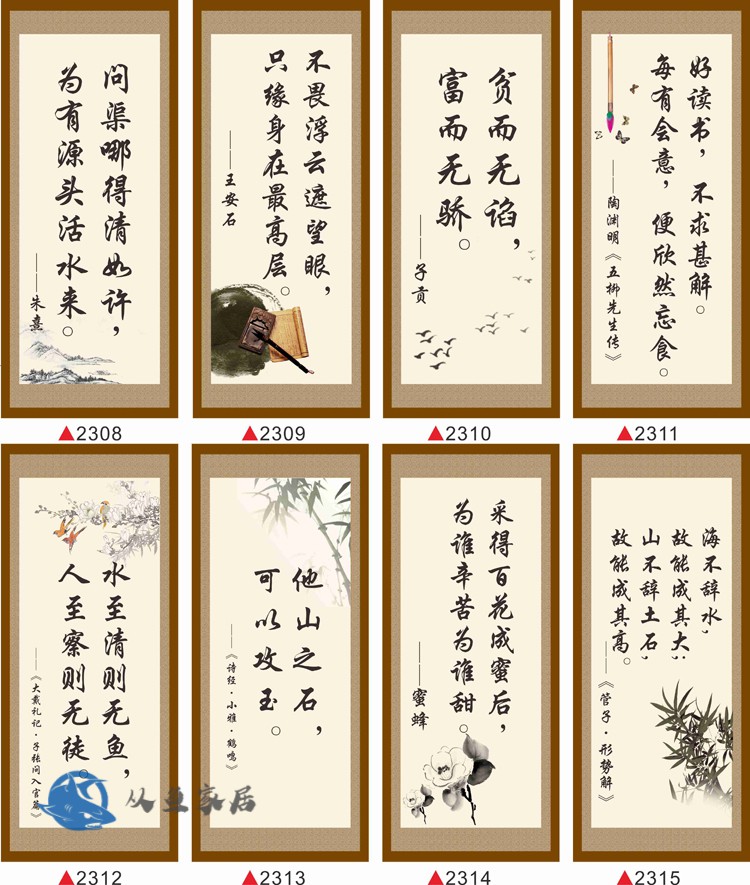 问渠哪得清如许，
为有源头活水来。
——朱熹
▲2308
不畏浮云遮望眼，
只缘身在最高层。
——王安石
▲2309
贫而无谄，
富而无骄。
——子贡
▲2310
好读书，不求甚解。
每有会意，便欣然忘食。
——陶渊明《五柳先生传》
▲2311
水至清则无鱼，
人至察则无徒。
——《大戴礼记·子张问入官篇》
▲2312
他山之石，
可以攻玉。
——《诗经·小雅·鹤鸣》
▲2313
采得百花成蜜后，
为谁辛苦为谁甜。
——蜜蜂
▲2314
海不辞水，
故能成其大；
山不辞土石，
故能成其高。
——《管子·形势解》
▲2315
从鱼家居